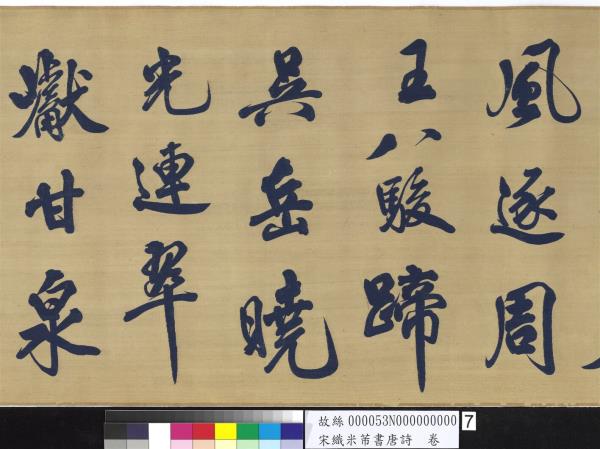 風逐周
王八駿蹄
吳岳曉
光連翠
巘甘泉
故絲 000053N000000000 7
宋織米芾書唐詩 卷